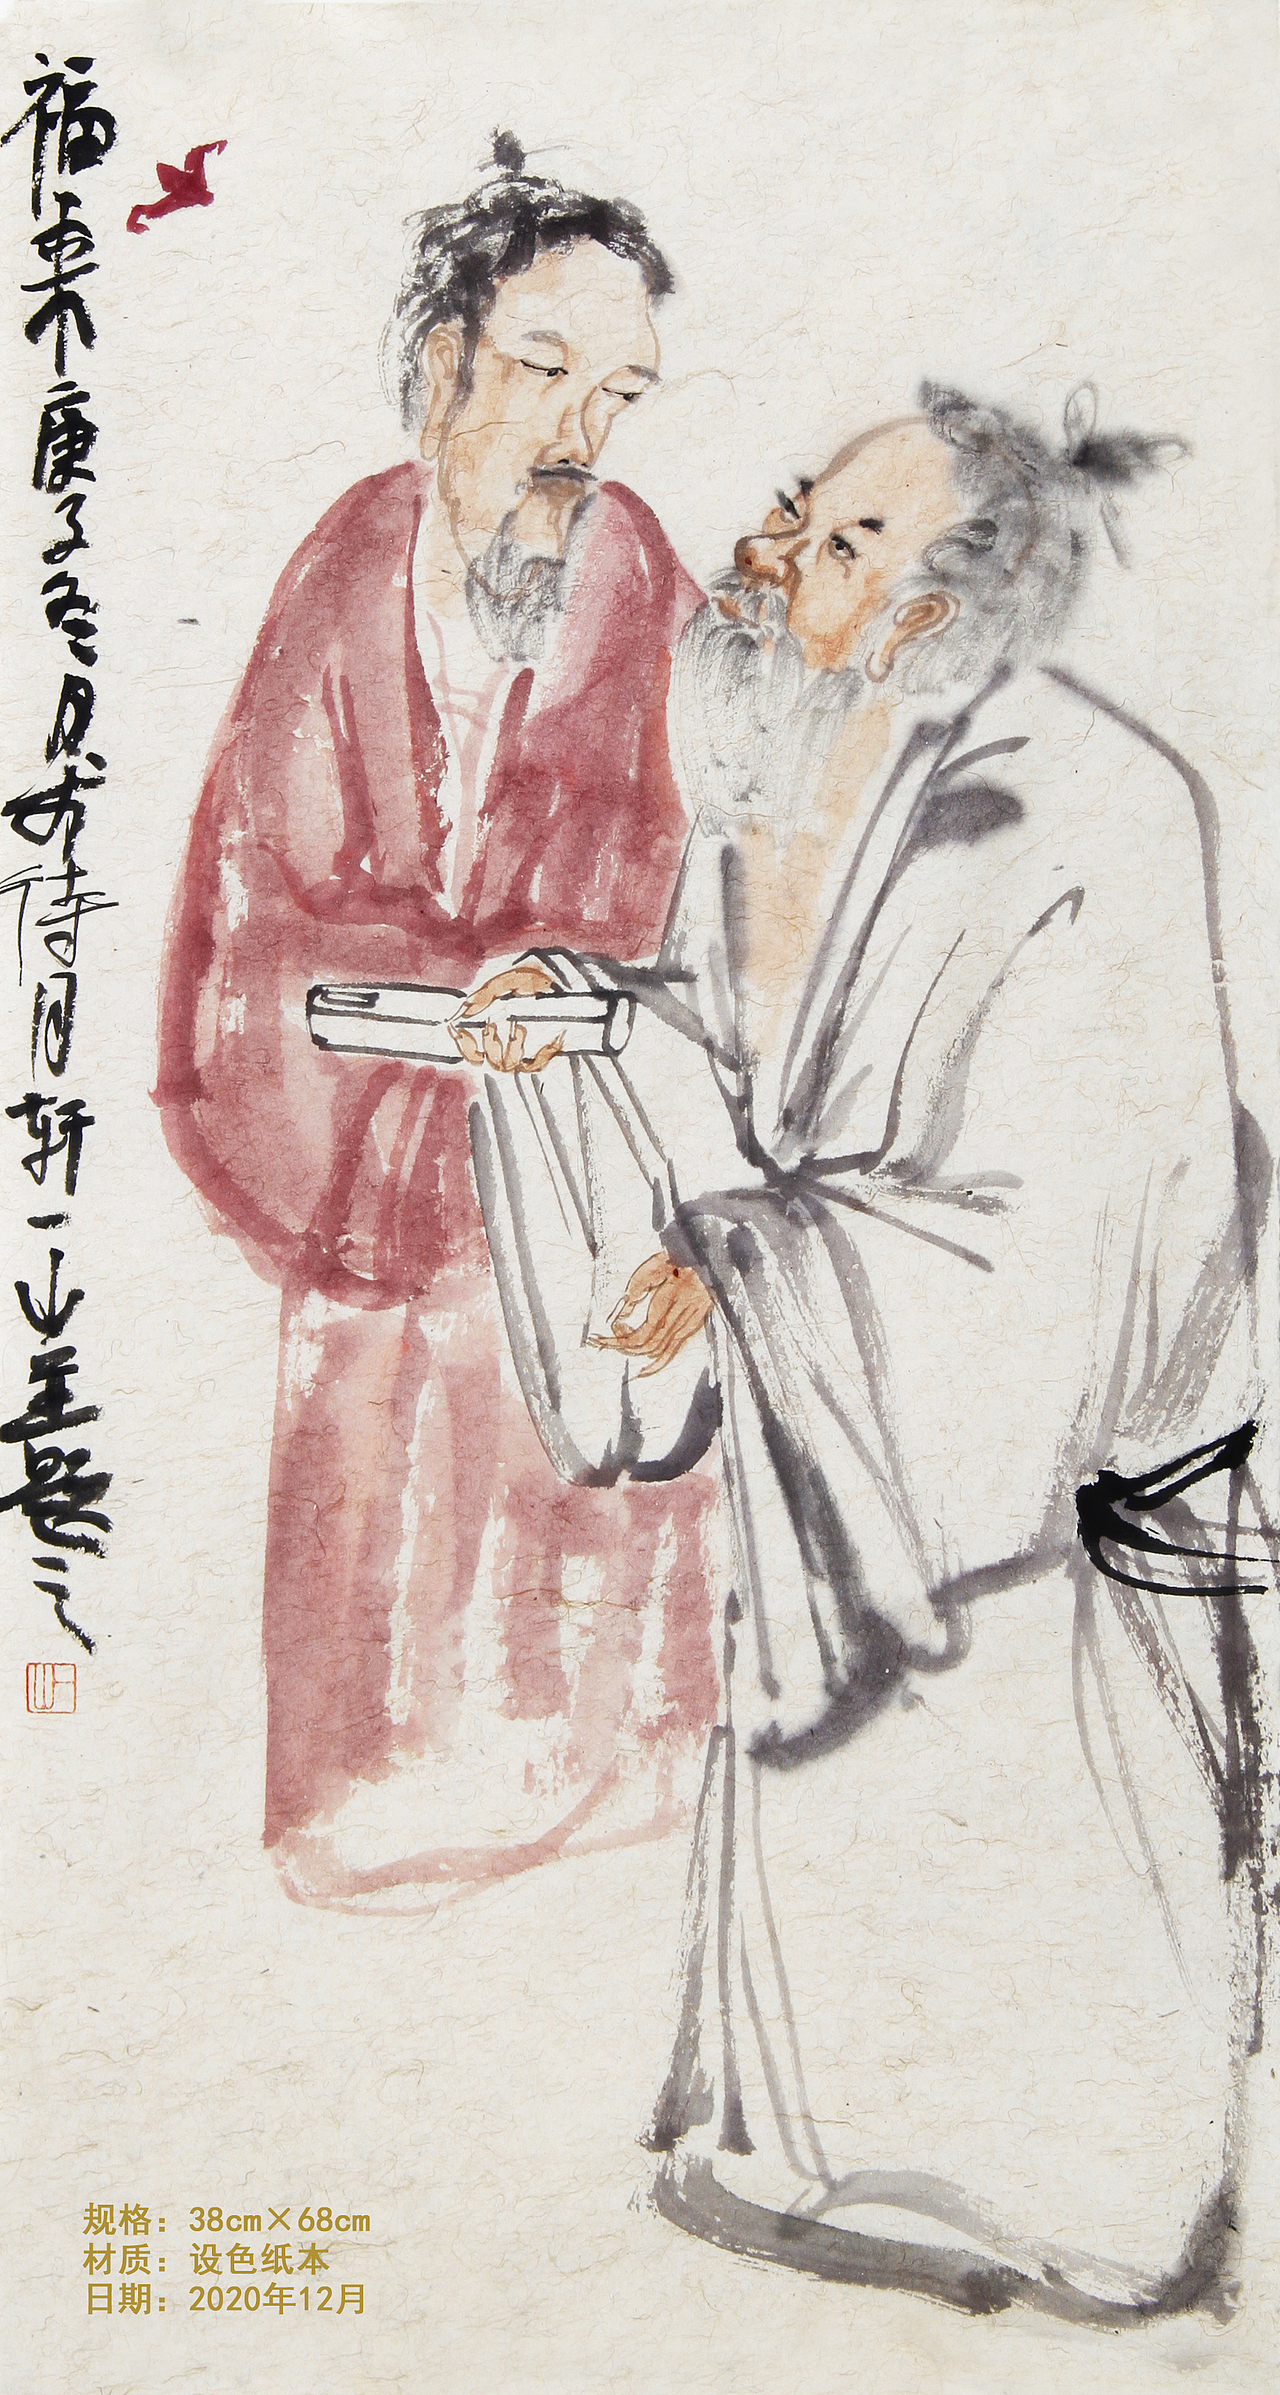 福来庚子冬月于待月轩一山主题之
规格：38cm×68cm
材质：设色纸本
日期：2020年12月